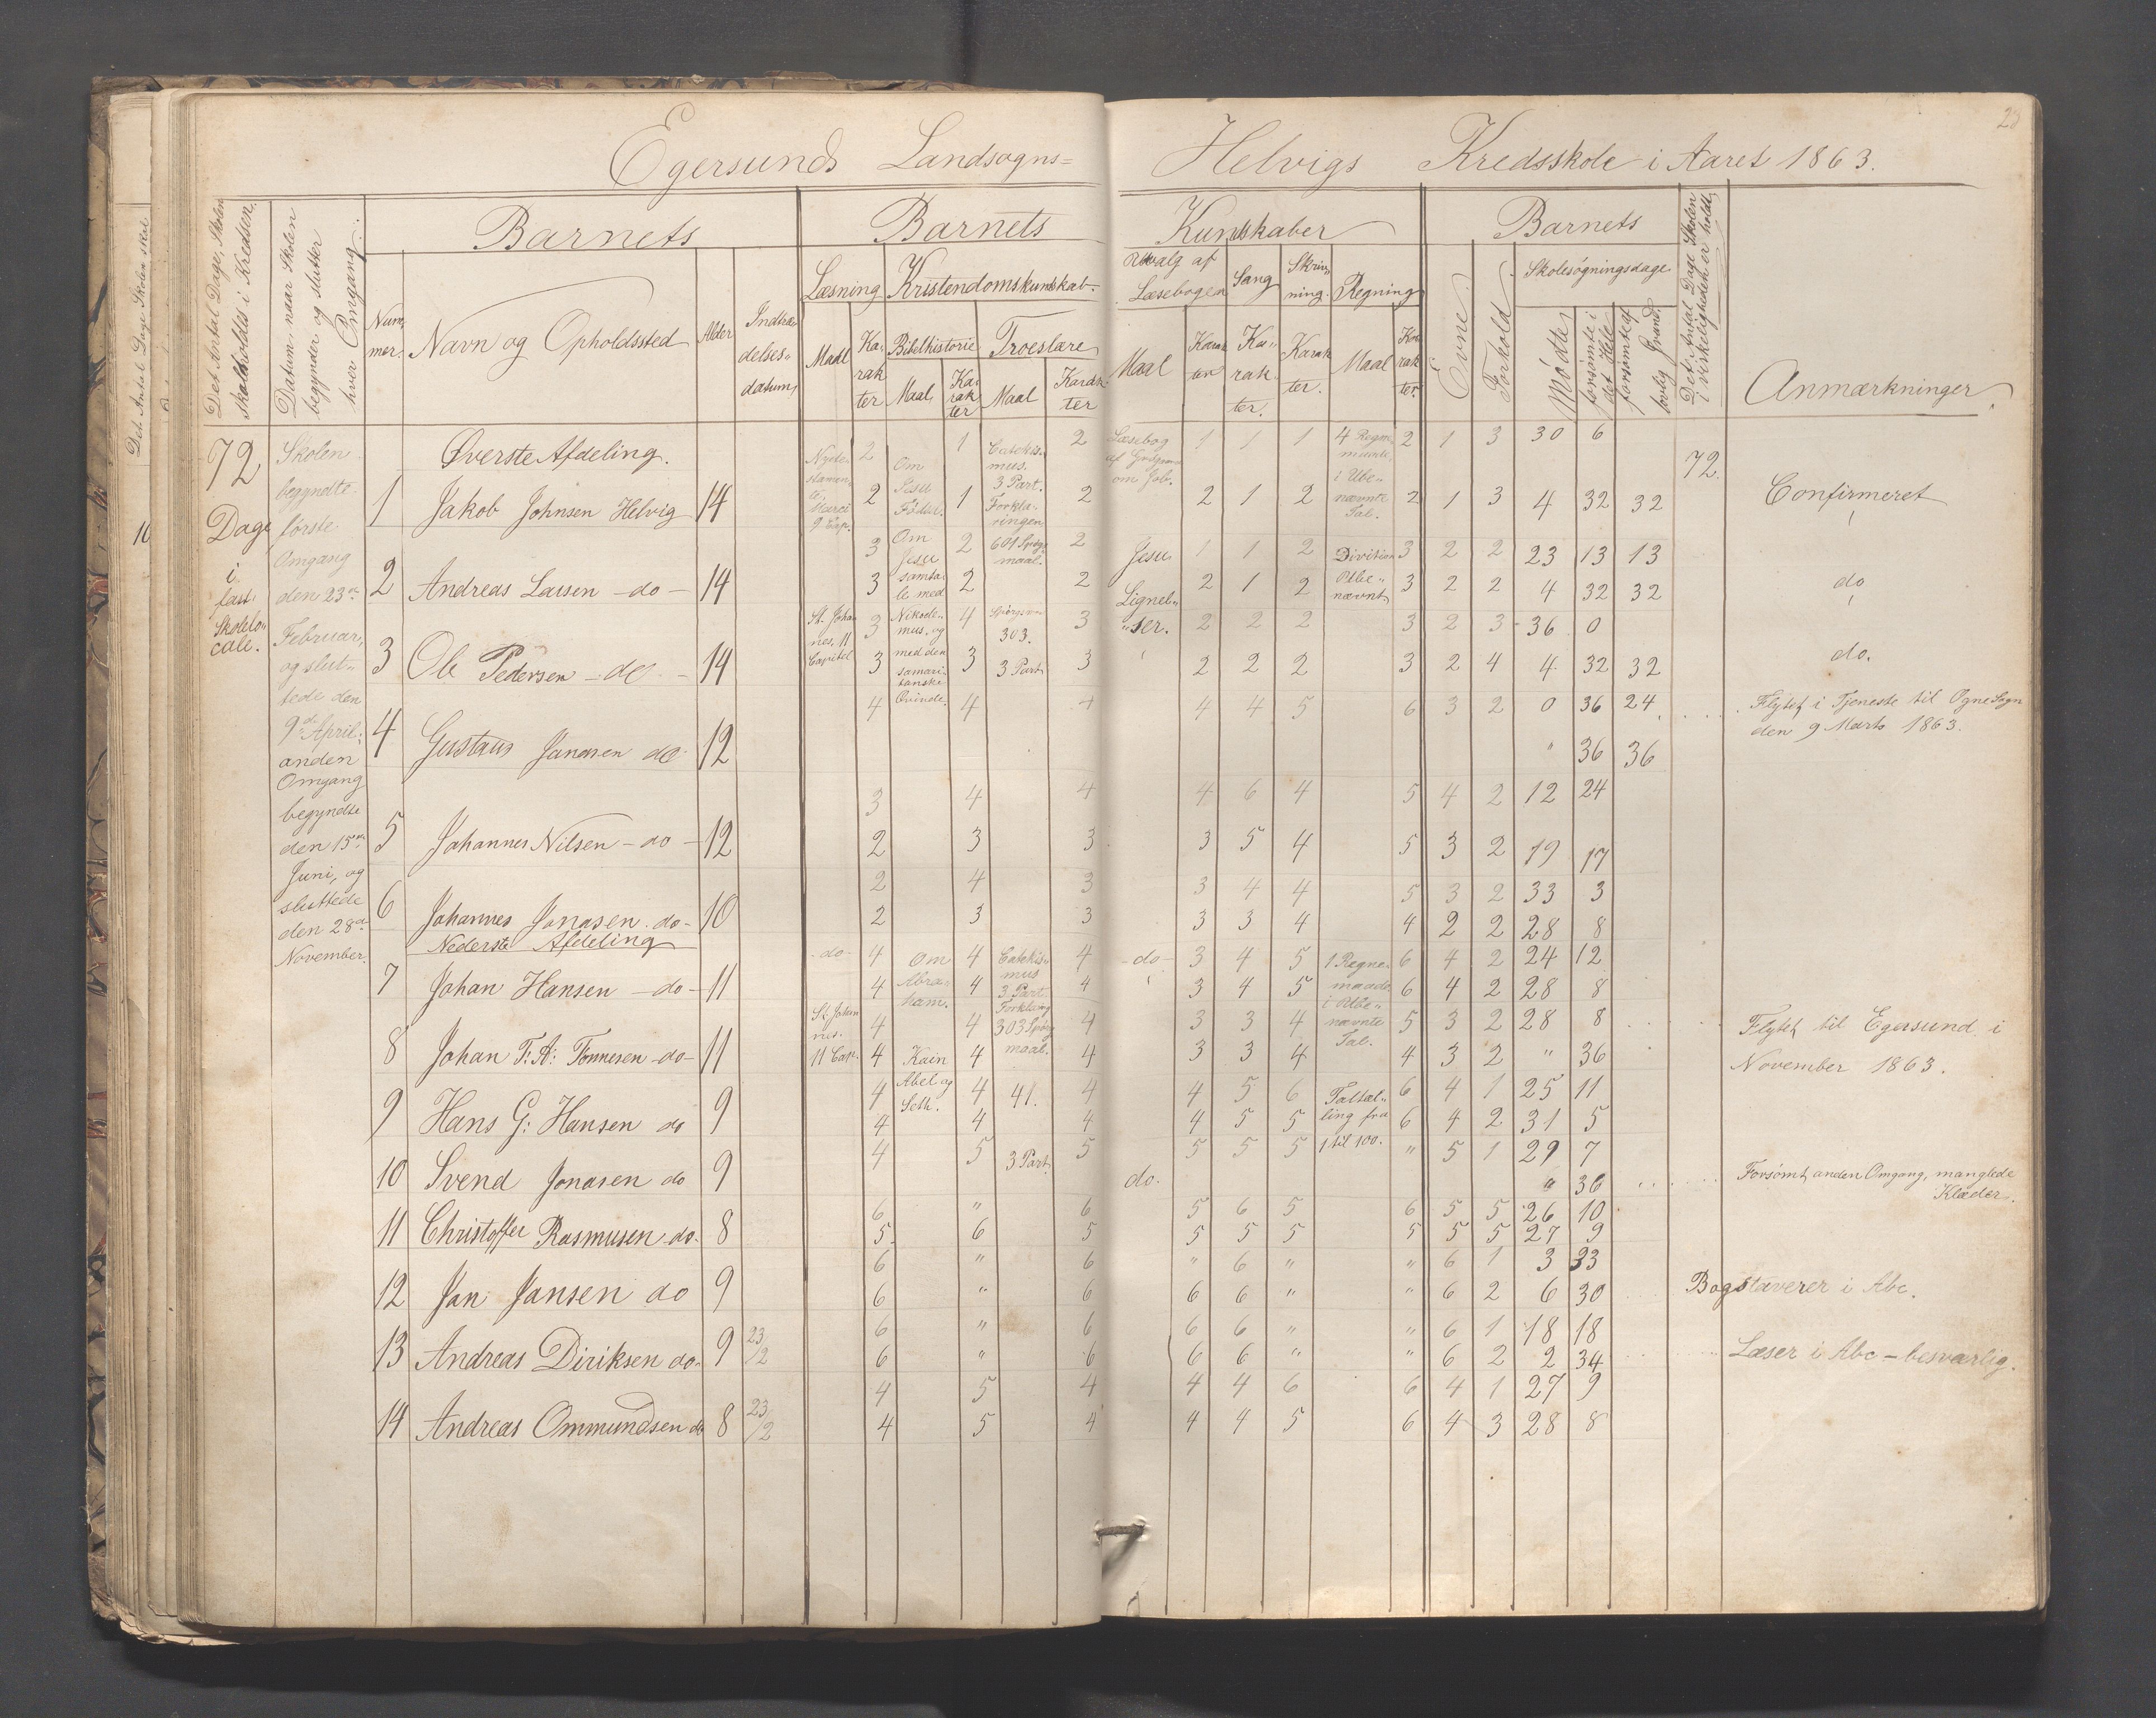 Egersunds Landsogns= Helvigs Kredsskole i Aaret 1863.
Det Antal Dage, Skolen skal holdes i Kredsen.
Datum naar Skolen begynder og slutter hver Omgang.
Barnets
Num-
mer.
Navn og Opholdssted
Alder
Indtræ-
delses-
datum,
Barnets Kundskaber
Læsning
Maal
Ka-
rak
ter
Kristendomskundskab.
Bibelhistorie
Maal
Ka-
rak
ter
Troeslære
Maal
Karak-
ter
Udvalg af
Læsebogen
Maal
Karak
ter
Sang
Ka-
rak
ter.
Skriv-
ning.
Karak
ter.
Regning
Maal
Ka-
rak
ter.
Barnets
Evne.
Forhold.
Skolesøgningsdage
Mødte
forsømte i det Hele
forsømte af lovlig Grund.
Det Antal Dage Skolen i virkeligheden er holdt,
Anmærkninger.
72
Dage,
i
fast
Skolelo-
cale.
Skolen
begyndte
første
Omgang
den 23de
Februar,
og slut-
tede den
9de April;
anden
Omgang
begyndte
den 15de
Juni, og
sluttede
den 28de
November.
Øverste Afdeling.
2 1 2 1 1 1 2 1 3 30 6
72.
1 Jakob Johnsen Helvig 14 2 1 2 2 1 2 2 1 3 4 32 32 Confirmeret
3 2 2 1 1 2 3 2 2 23 13 13
2 Andreas Larsen do 14 3 2 2 2 1 2 3 2 2 4 32 32 do
3 4 3 2 2 2 3 2 3 36 0
3 Ole Pedersen do 14 3 3 3 2 2 2 3 2 4 4 32 32 do.
4 4 4 4 4 5 6 3 2 0 36 24 Flytet i Tjeneste til Ogne Sogn
den 9 Marts 1863.
4 Gustaus Janasen do 12 " 36 36
3 4 4 4 6 4 5 4 2 12 24
5 Johannes Nilsen do 12 2 3 3 3 5 4 5 3 2 19 17
2 4 3 3 4 4 5 3 2 33 3
6 Johannes Jonasen do 10 2 3 3 3 3 4 4 2 2 28 8
Nyete-
stamen-
te,
Marci
9 Cap.
St. Johan
nes. 11
Capitel
Om
Jesu
Fødsel.
Om
Jesu
samta-
le med
Nikode-
mus, og
med den
samari-
tanske
Qvinde.
Catekis-
mus.
3 Part.
Forkla-
ringen
601 Spørgs
maal.
303.
3 Part
Læsebog
om Job.
Jesu
Lignel-
ser.
4 Regne
maade,
i Ube-
nævnte
Tal.
Division
Ube-
nævnt
Nederste Afdeling
do 4 4 4 do 3 4 5 6 4 2 24 12
7 Johan Hansen do 11 4 4 4 3 4 5 6 4 2 28 8
4 4 4 3 3 4 5 3 2 28 8 Flytet til Egersund i
8 Johan T. A. Tønnesen do 11 4 4 4 3 3 4 4 3 2 " 36 November 1863.
4 4 4 4 5 6 6 4 1 25 11
9 Hans G: Hansen do 9 4 4 4 4 5 5 6 4 2 31 5
4 5 5 5 5 5 " 5 1 29 7
10 Svend Jonasen do 9 do. " 36 Forsømt anden Omgang, manglede
Klæder.
6 " 6 5 6 5 6 5 5 26 10
11 Christoffer Rasmusen do. 8 5 6 5 5 5 5 5 5 5 27 9
6 " 6 " 6 " " 6 1 3 33
12 Jan Jansen do 9 6 " 6 6 6 " " 6 2 6 30 Bogstaverer i Abc.
6 " 6 6 6 " " 6 1 18 18
13 Andreas Diriksen do. 9 23/2 6 " 6 6 6 " " 6 2 2 34 Læser i Abc - besværlig.
4 5 4 4 4 6 6 4 1 27 9
14 Andreas Ommundsen do 8 23/2 4 5 4 4 4 5 6 4 3 28 8
St. Johan
nes.
11 Cap.
Om
Abra-
ham.
Kain
Abel og
Seth.
Catekis-
mus
3 Part.
Forklaring
303 Spørg
maal.
41.
3 Part.
1 Regne-
maade
i Ube-
nævnte
Tal.
Taltæl-
ling fra
1 til 100.